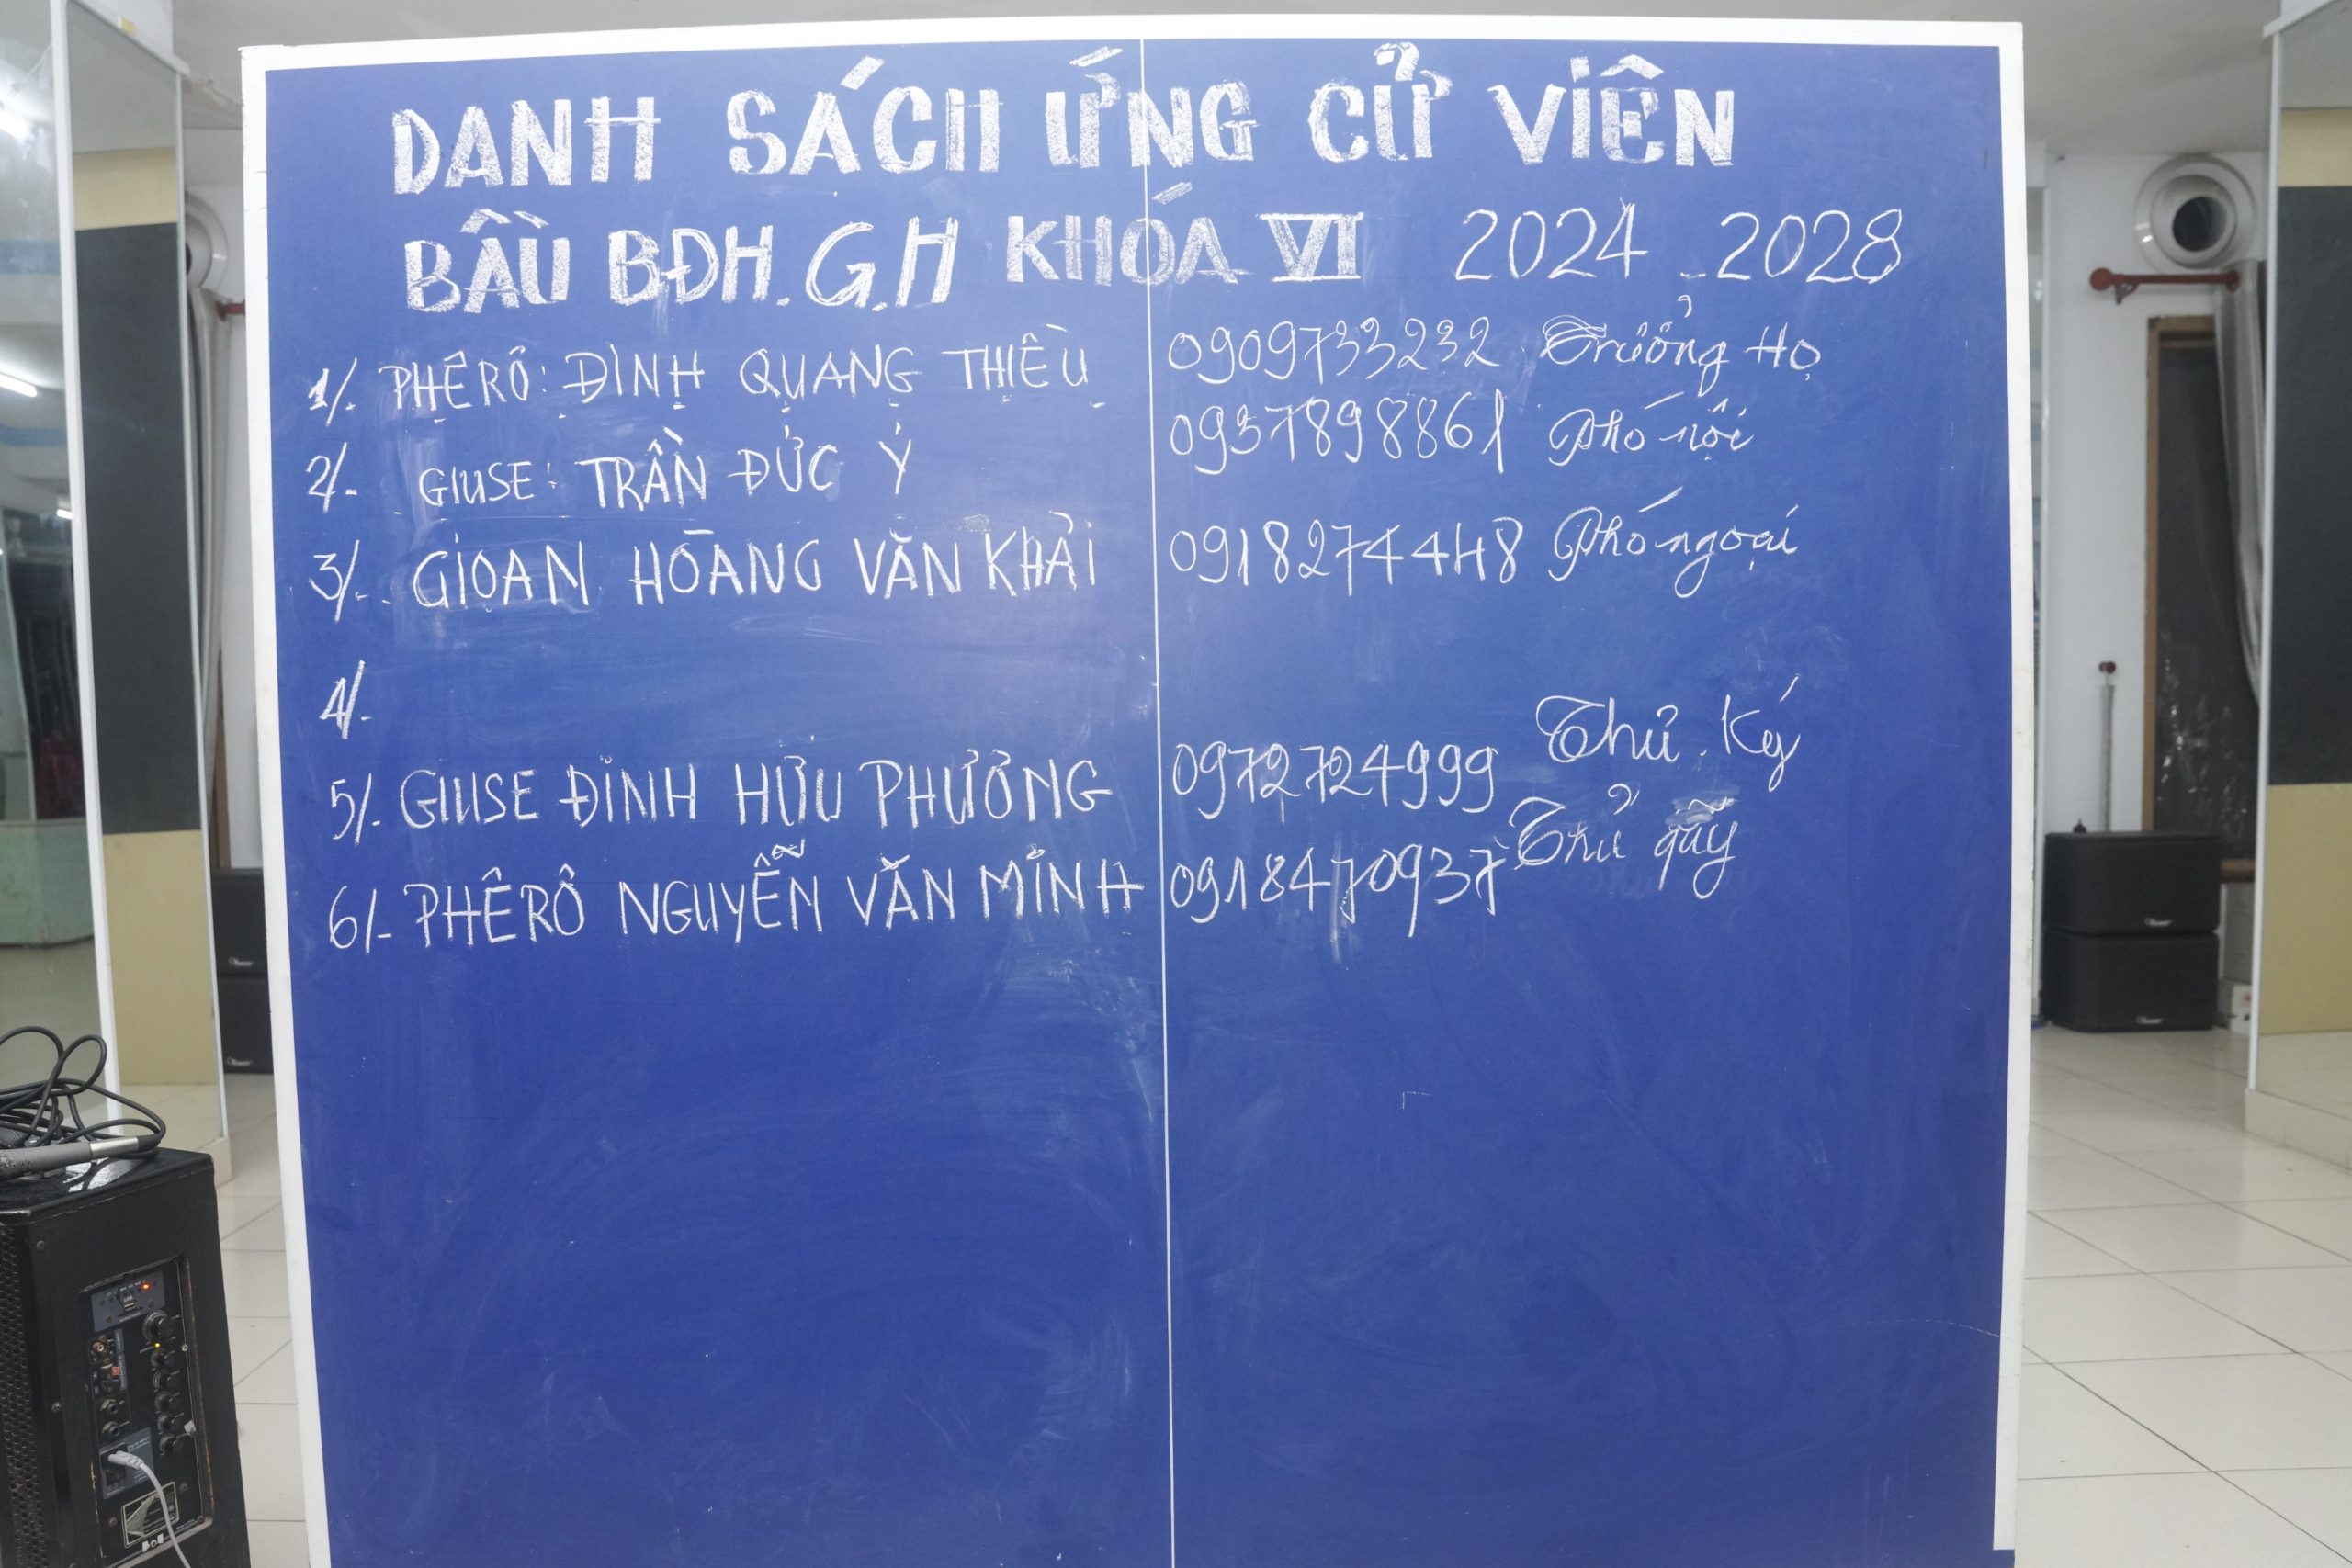 DANH SÁCH ỨNG CỬ VIÊN
BẦU BĐH.G.H KHÓA VI 2024-2028
1/. PHÊRÔ: ĐÌNH QUANG THIỀU 0909733232 Trưởng Họ
2/. GIUSE: TRẦN ĐỨC Ý 0937898861 Phó nội
3/. GIOAN HOÀNG VĂN KHẢI 0918274448 Phó ngoại
4/.
5/. GIUSE ĐINH HỮU PHƯƠNG 0972724999 Thư Ký
6/. PHÊRÔ NGUYỄN VĂN MINH 0918470937 Thủ quỹ